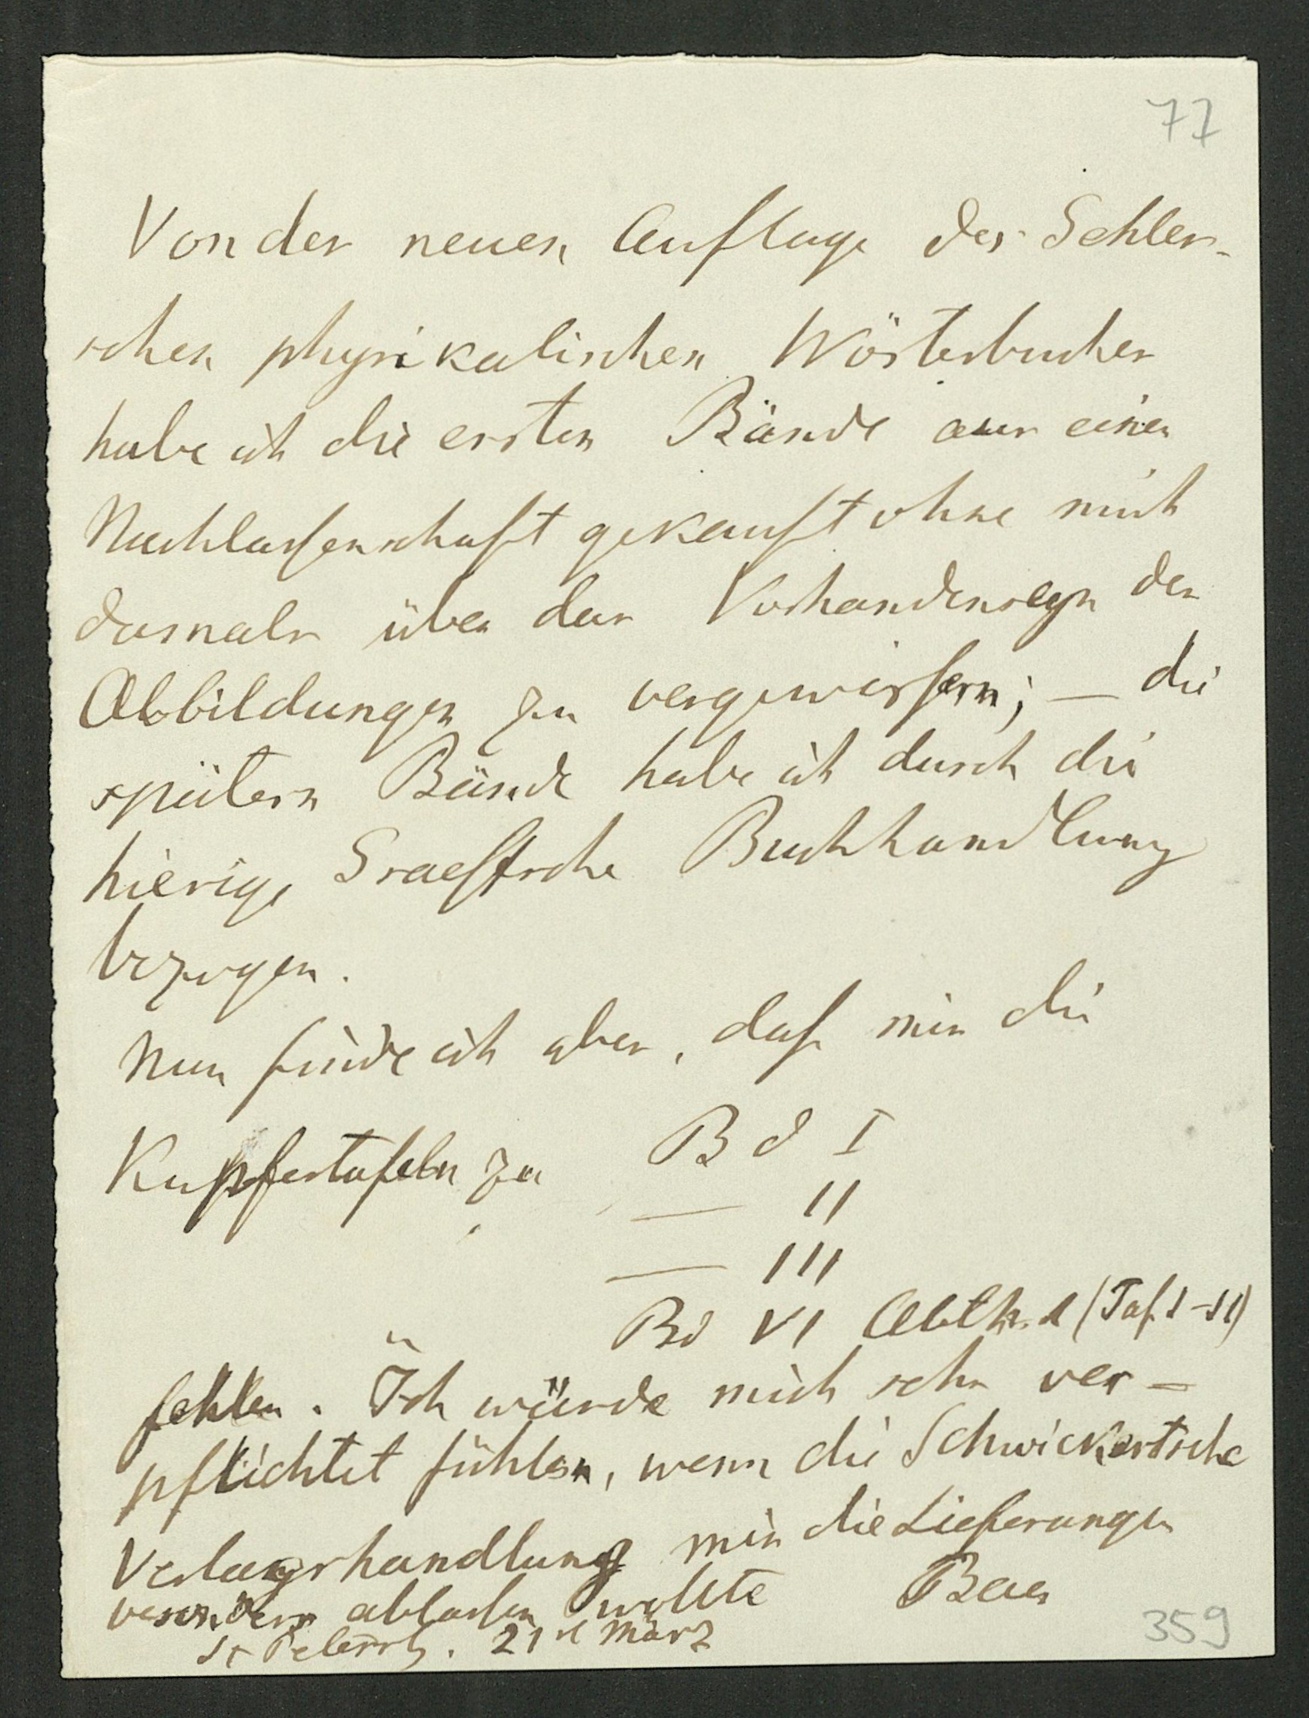 77
Von der neuen Auflage des Gehler-
schen physikalischen Wörterbuches
habe ich die ersten Bände aus einer
Nachlaßenschaft gekauft ohne mich
damals über das Vorhandenseyn der
Abbildungen zu vergewißern; — die
spätern Bände habe ich durch die
hiesige Graeffsche Buchhandlung
bezogen.
Nun finde ich aber, daß mir die
Kupfertafeln zu Bd I
— II
— III
Bd VI Abth. 1 (Taf. 1-11)
fehlen. Ich würde mich sehr ver-
pflichtet fühlen, wenn die Schwickertsche
Verlagshandlung mir die Lieferungen
besonders ablaßen wollte Baer
St Petersb. 21st März
359